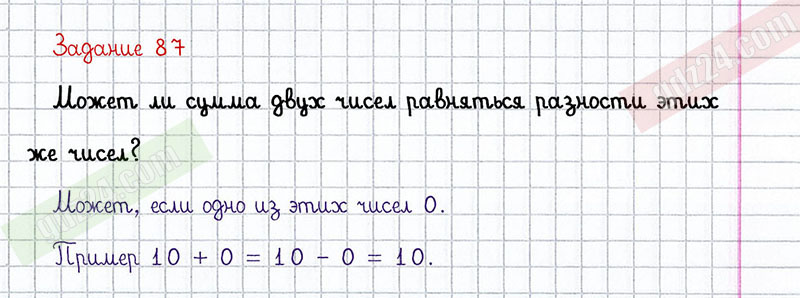 Задание 87
Может ли сумма двух чисел равняться разности этих
же чисел?
Может, если одно из этих чисел 0.
Пример 10 + 0 = 10 - 0 = 10.
gdz24.com
gdz24.com